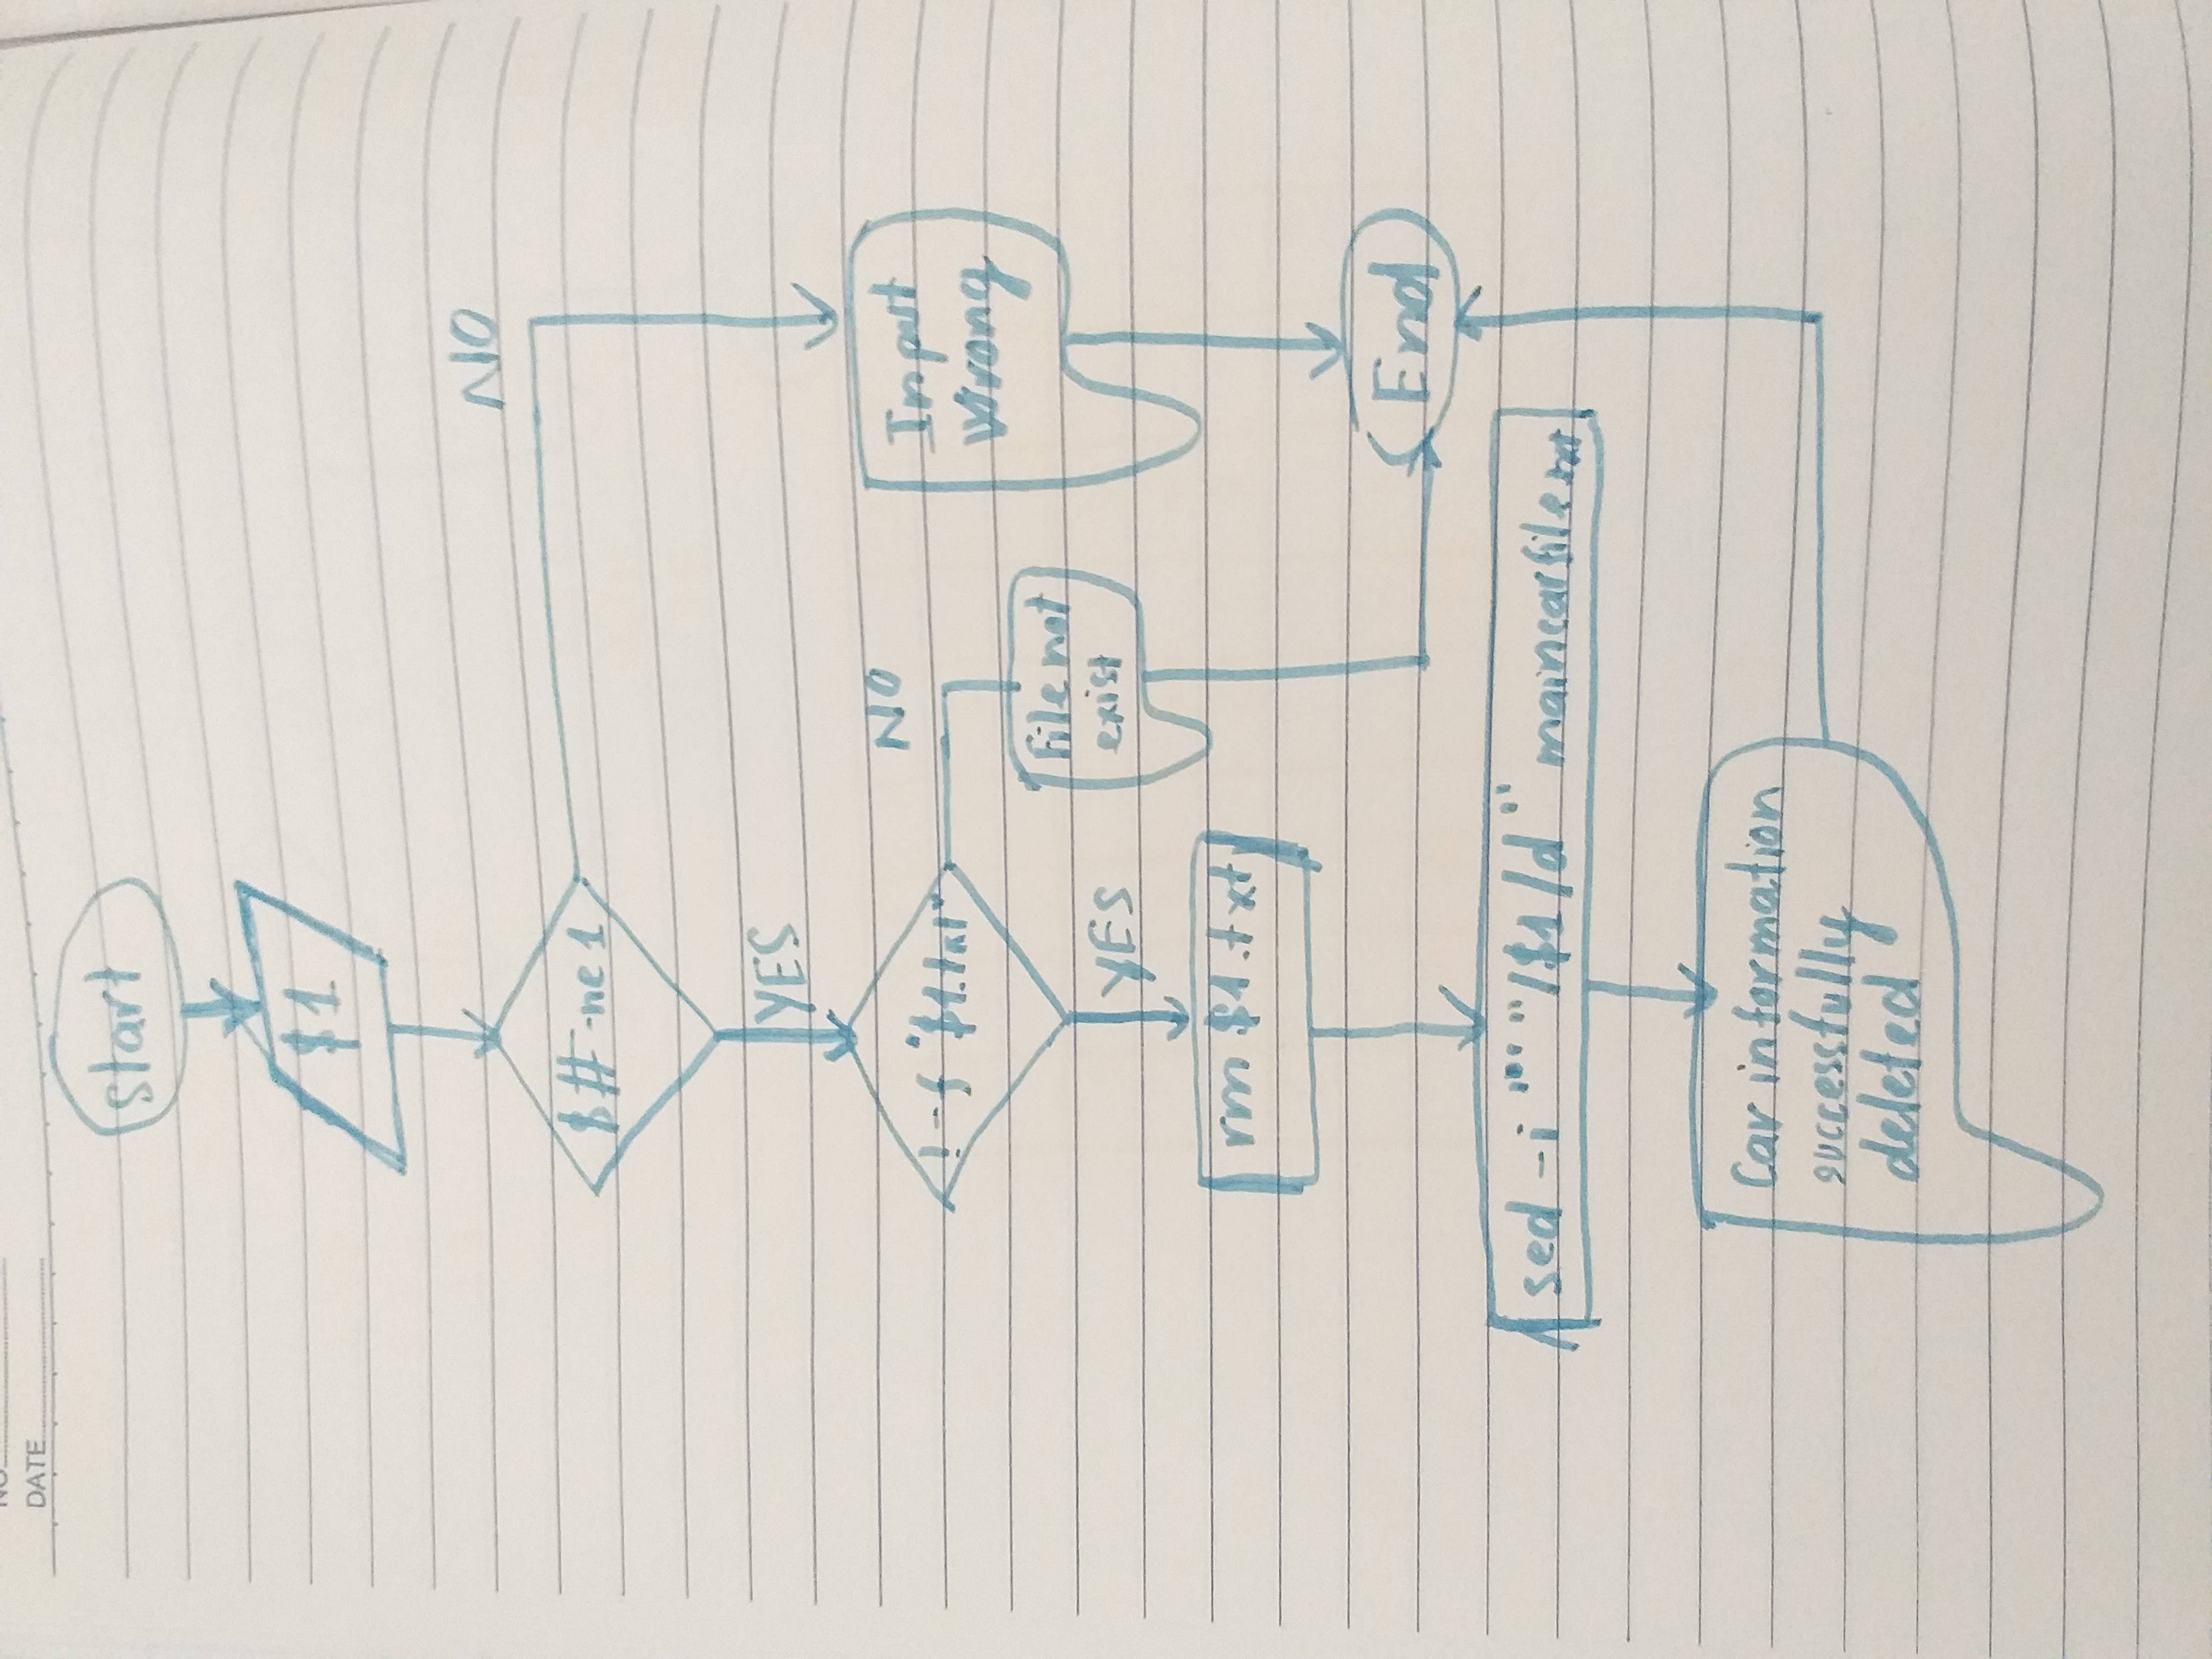 NO
DATE
start
$1
$# -ne 1
NO
YES
! -f "$1.txt"
NO
Input
Wrong
File not
exist
YES
rm $1.txt
End
sed -i """ "/$1/d" maincarfile.txt
Car information
successfully
deleted